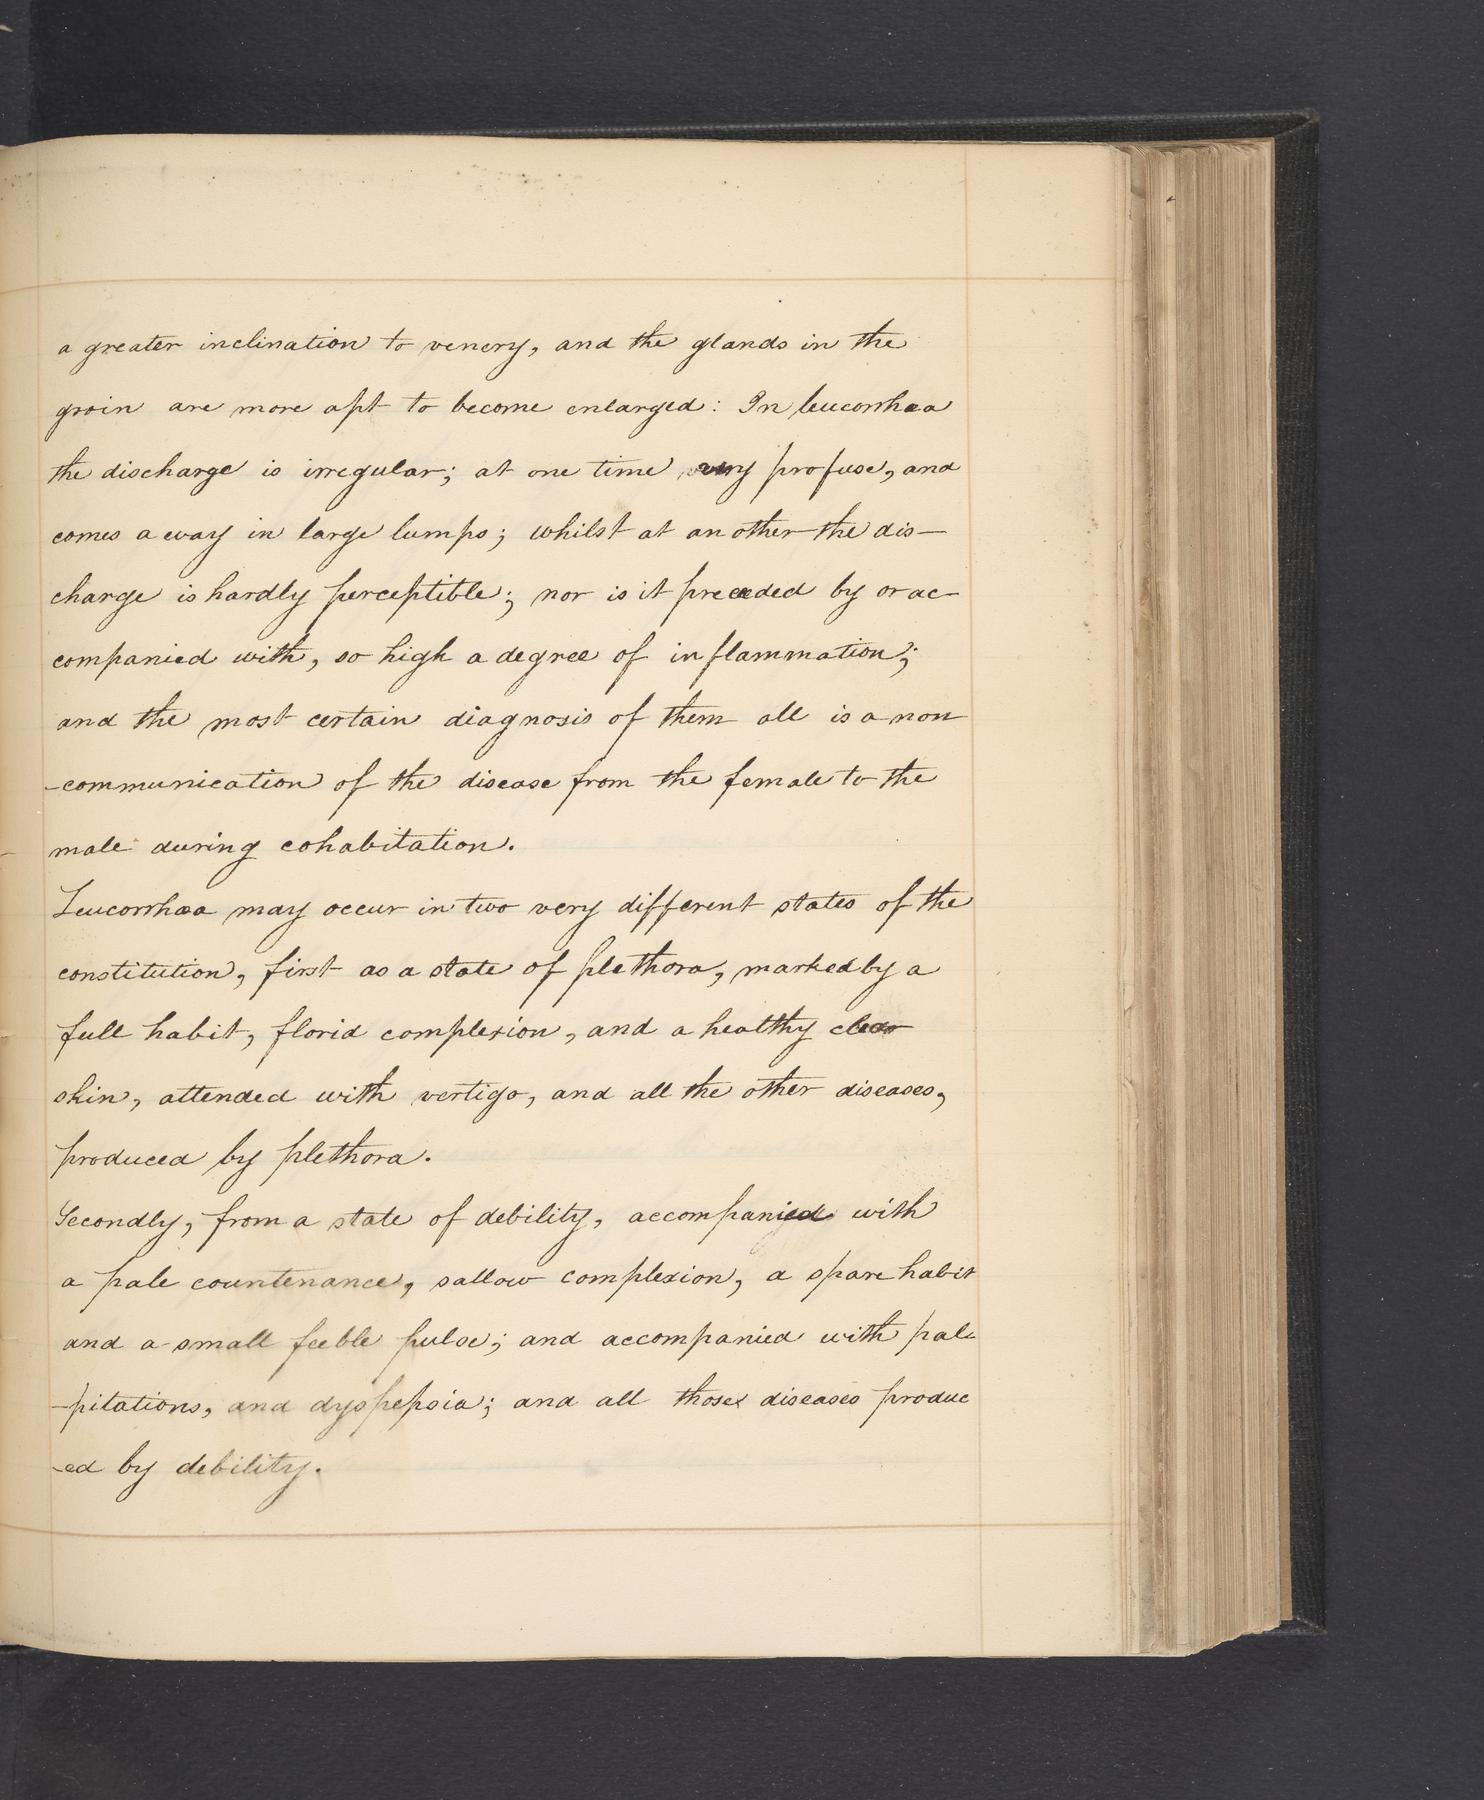 a greater inclination to venery, and the glands in the
groin are more apt to become enlarged: In leucorrhœa
the discharge is irregular; at one time very profuse, and
comes away in large lumps; whilst at another the dis-
charge is hardly perceptible; nor is it preceded by or ac-
companied with, so high a degree of inflammation;
and the most certain diagnosis of them all is a non
-communication of the disease from the female to the
male during cohabitation.
Leucorrhœa may occur in two very different states of the
constitution, first as a state of plethora, marked by a
full habit, florid complexion, and a healthy clear
skin, attended with vertigo, and all the other diseases,
produced by plethora.
Secondly, from a state of debility, accompanied with
a pale countenance, sallow complexion, a spare habit
and a small feeble pulse; and accompanied with pal-
-pitations, and dyspepsia; and all those diseases produc
-ed by debility.